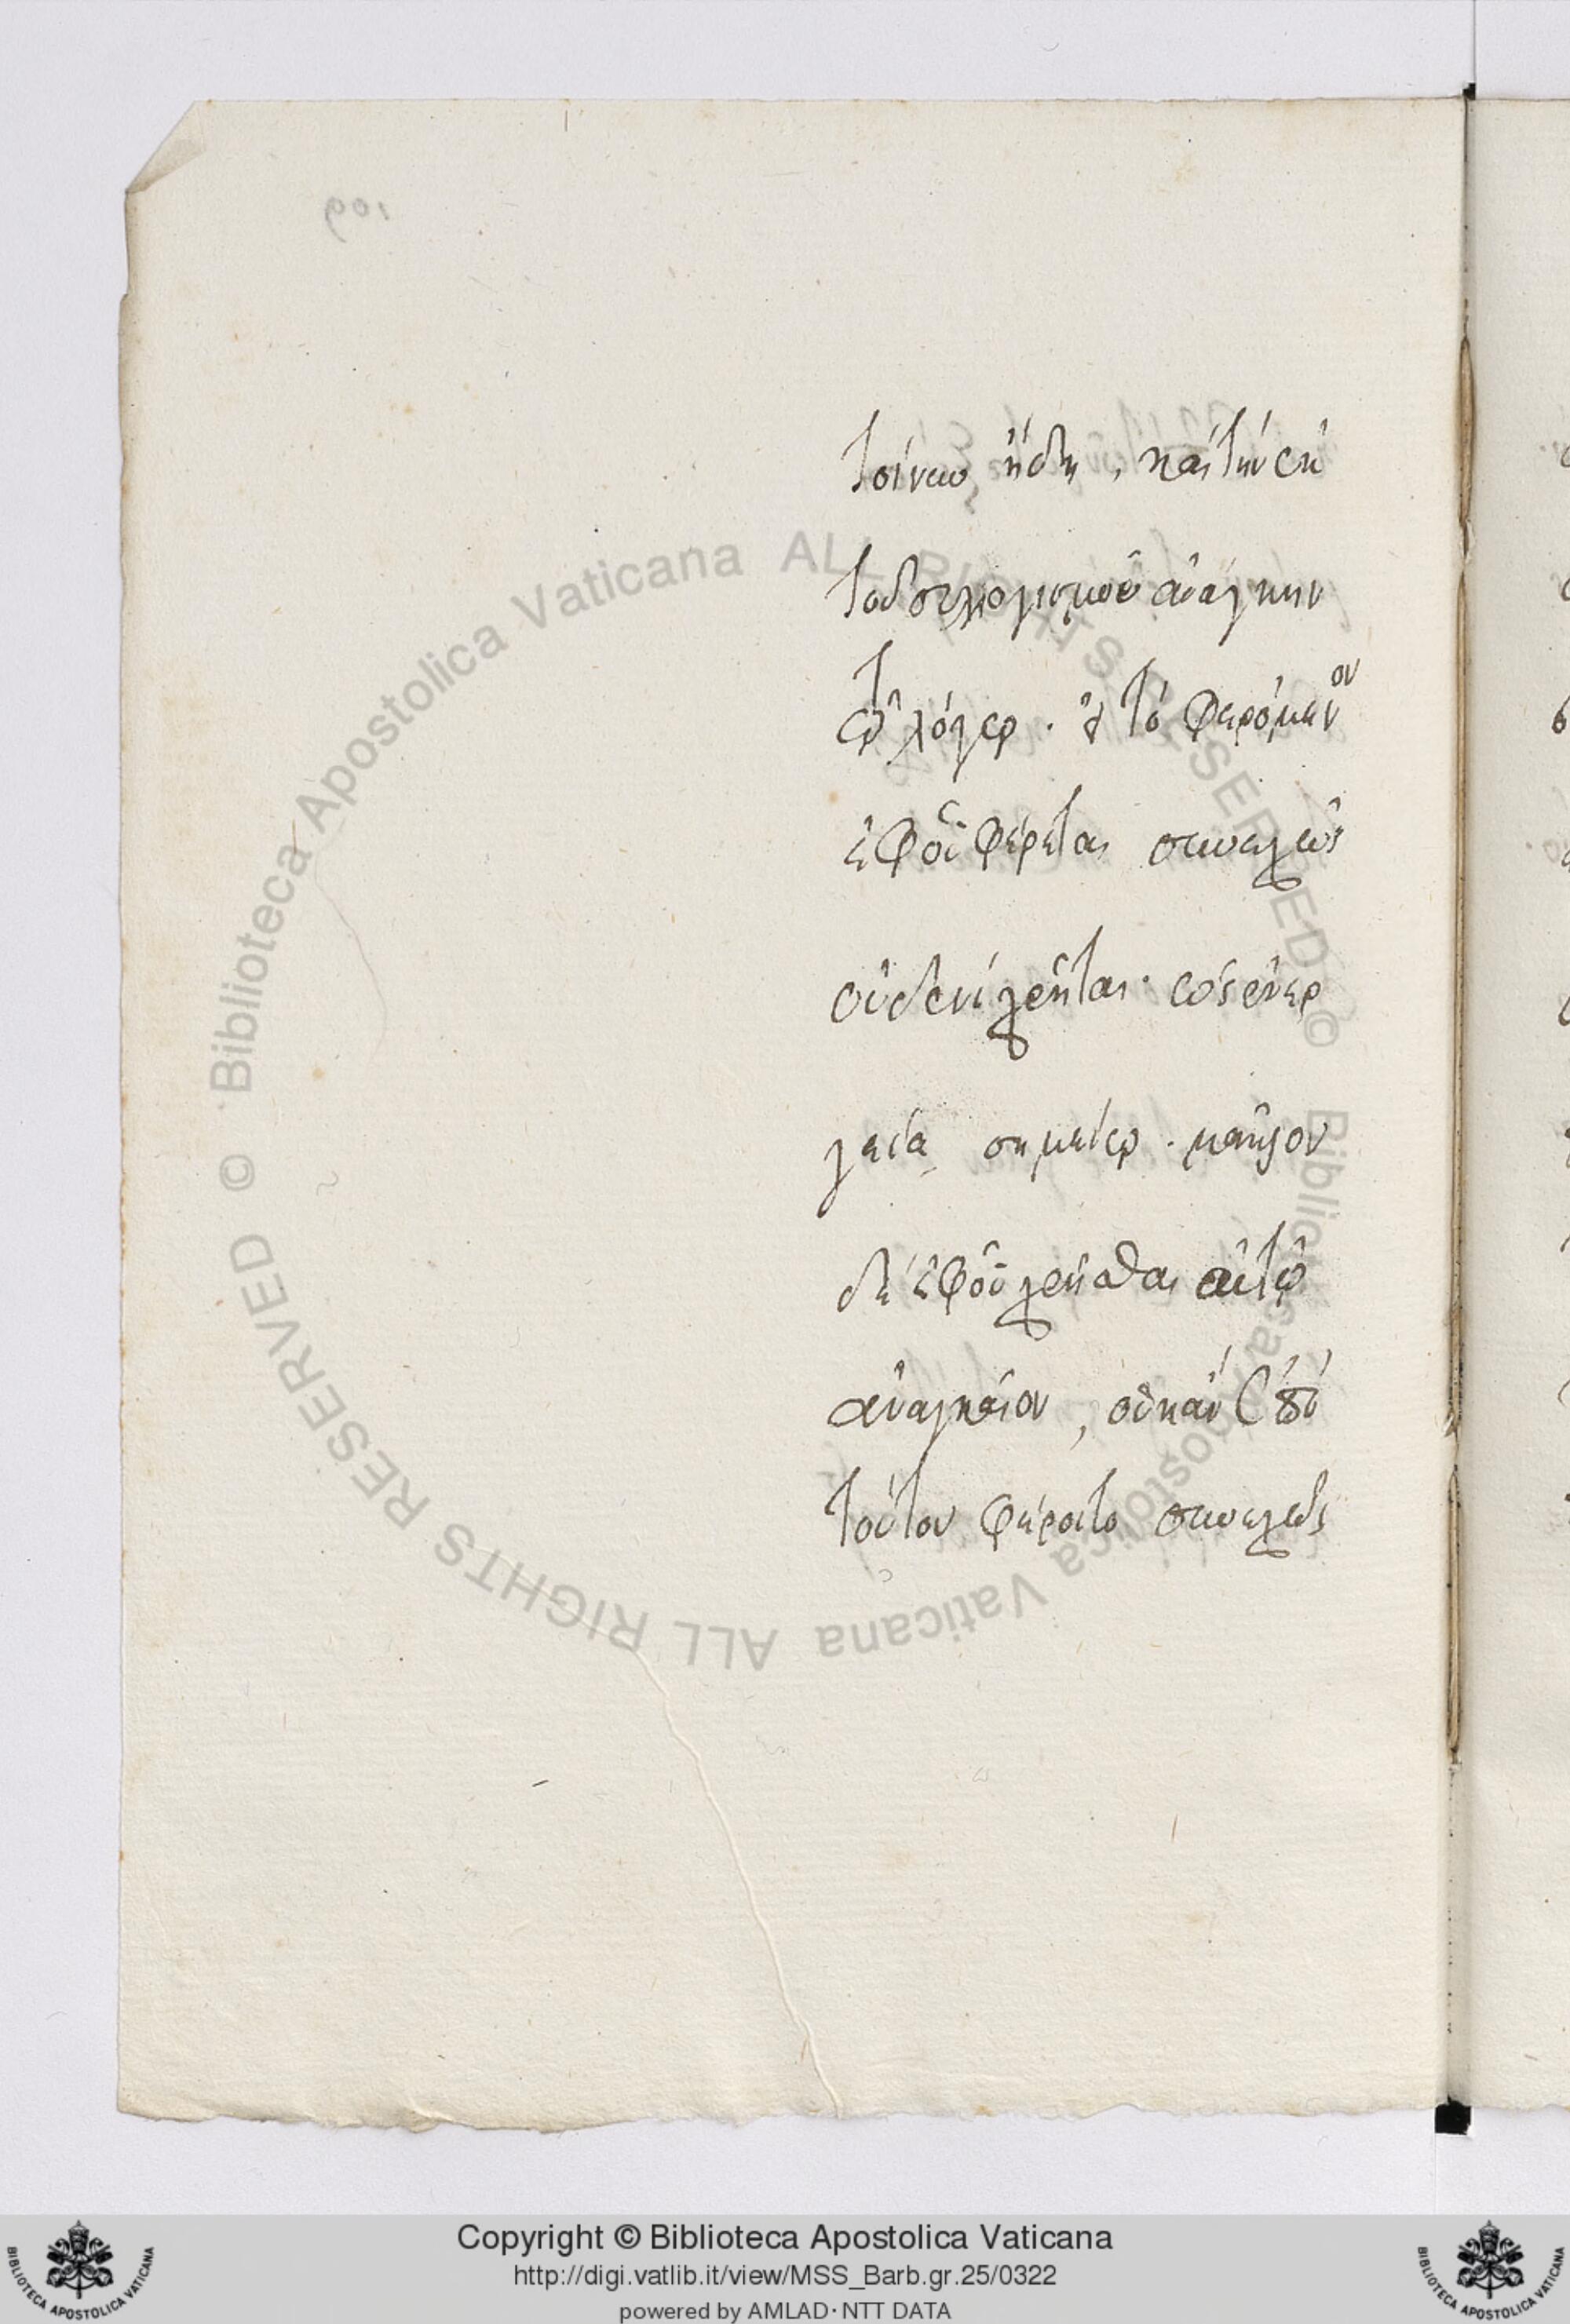 τοίνυν ἤδη, καὶ τὴν ἐκ
τοῦ συλλογισμοῦ ἀνάγκην
τῷ λόγῳ. εἰ τὸ φερόμενον
ἐφ' οὗ φέρεται συνεχῶς
οὐδενὶ χρῆται· ὡς ἐνερ
γείᾳ σημείῳ.
δὲ ἐφ' οὗ χρῆσθαι αὐτῷ
ἀναγκαῖον, οὐκ ἂν ἐπὶ
τούτου φέροιτο συνεχῶς
© Biblioteca Apostolica Vaticana ALL RIGHTS RESERVED
© Biblioteca Apostolica Vaticana ALL RIGHTS RESERVED
Copyright © Biblioteca Apostolica Vaticana
http://digi.vatlib.it/view/MSS_Barb.gr.25/0322
powered by AMLAD·NTT DATA
BIBLIOTECA APOSTOLICA VATICANA
BIBLIOTECA APOSTOLICA VATICANA